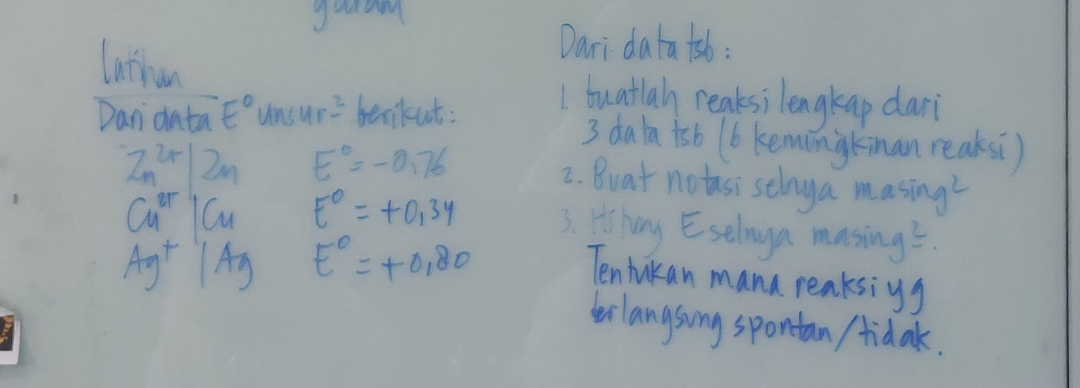 garam
Latihan
Dari data E° unsur² berikut:
Zn²⁺ | Zn E° = -0,76
Cu²⁺ | Cu E° = +0,34
Ag⁺ | Ag E° = +0,80
Dari data tsb:
1. buatlah reaksi lengkap dari
3 data tsb (6 kemungkinan reaksi)
2. Buat notasi selnya masing²
3. Hitung E selnya masing².
Tentukan mana reaksi yg
berlangsung spontan/tidak.